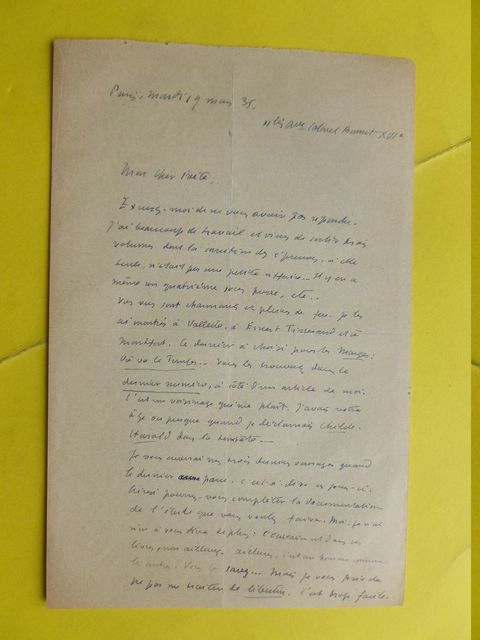 Paris, mardi 19 mars 35.
11 bis ave Colonel Bonnet XVIe
Mon cher Poète,
Excusez-moi de ne vous avoir pas répondu.
J'ai beaucoup de travail et viens de sortir trois
volumes dont la correction des épreuves, à elle
seule, n'était pas une petite affaire... Il y en a
même un quatrième sous presse, etc...
Vos vers sont charmants et pleins de feu. Je les
ai montrés à Vallette, à Ernest Tisserand et à
Montfort. Le dernier a choisi pour les Marges :
Où va le Temps... vous les trouverez dans le
dernier numéro, à côté d'un article de moi.
C'est un voisinage qui me plaît. J'avais votre
âge ou presque quand je déclamais Childe-
Harold dans la
Je vous enverrai mes trois derniers ouvrages quand
le dernier paru, c'est-à-dire ces jours-ci.
Ainsi pourrez-vous compléter la documentation
de l'étude que vous voulez faire. Moi, je n'ai
rien à vous dire de plus : l'écrivain est dans ses
livres, pas ailleurs. Ailleurs, c'est un homme comme
les autres. Vous le savez... Mais je vous prie de
ne pas me traiter de libertin. C'est trop facile.